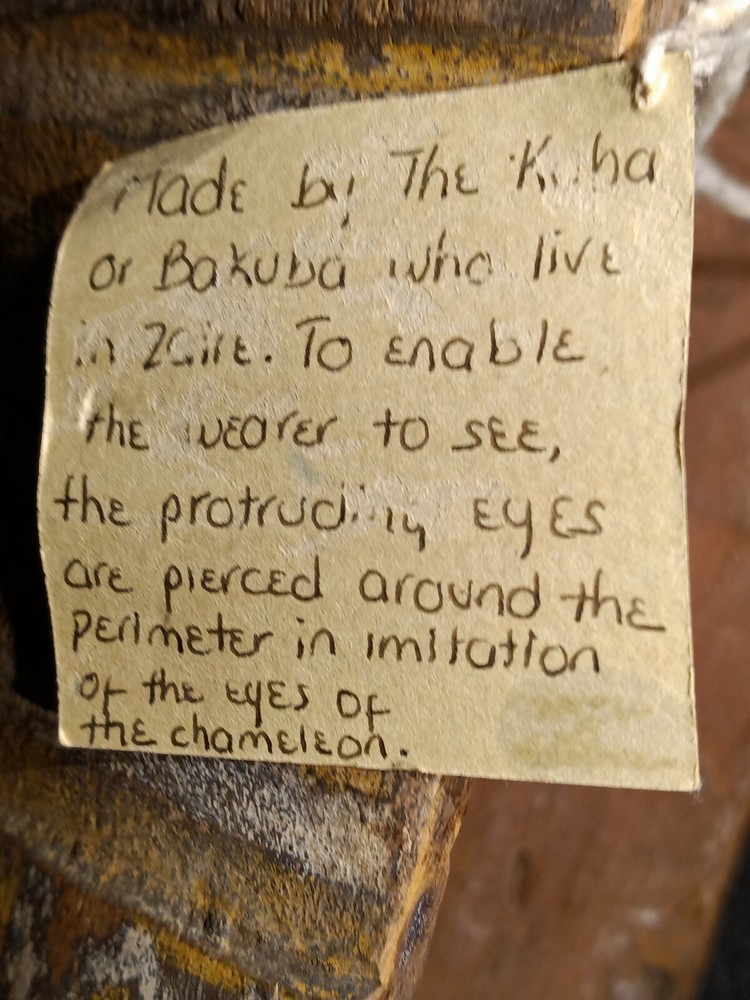 Made by The Kuba
or Bakuba who live
in Zaire. To enable
the wearer to see,
the protruding eyes
are pierced around the
perimeter in imitation
of the eyes of
the chameleon.